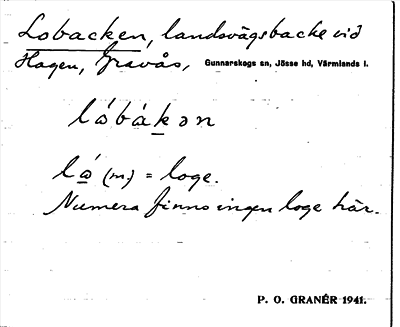 Lobacken, landsvägsbacke vid
Hagen, Gravås, Gunnarskogs sn, Jösse hd, Värmlands l.
lóbákən
lá (m.) = loge.
Numera finns ingen loge här.
P. O. GRANÉR 1941.